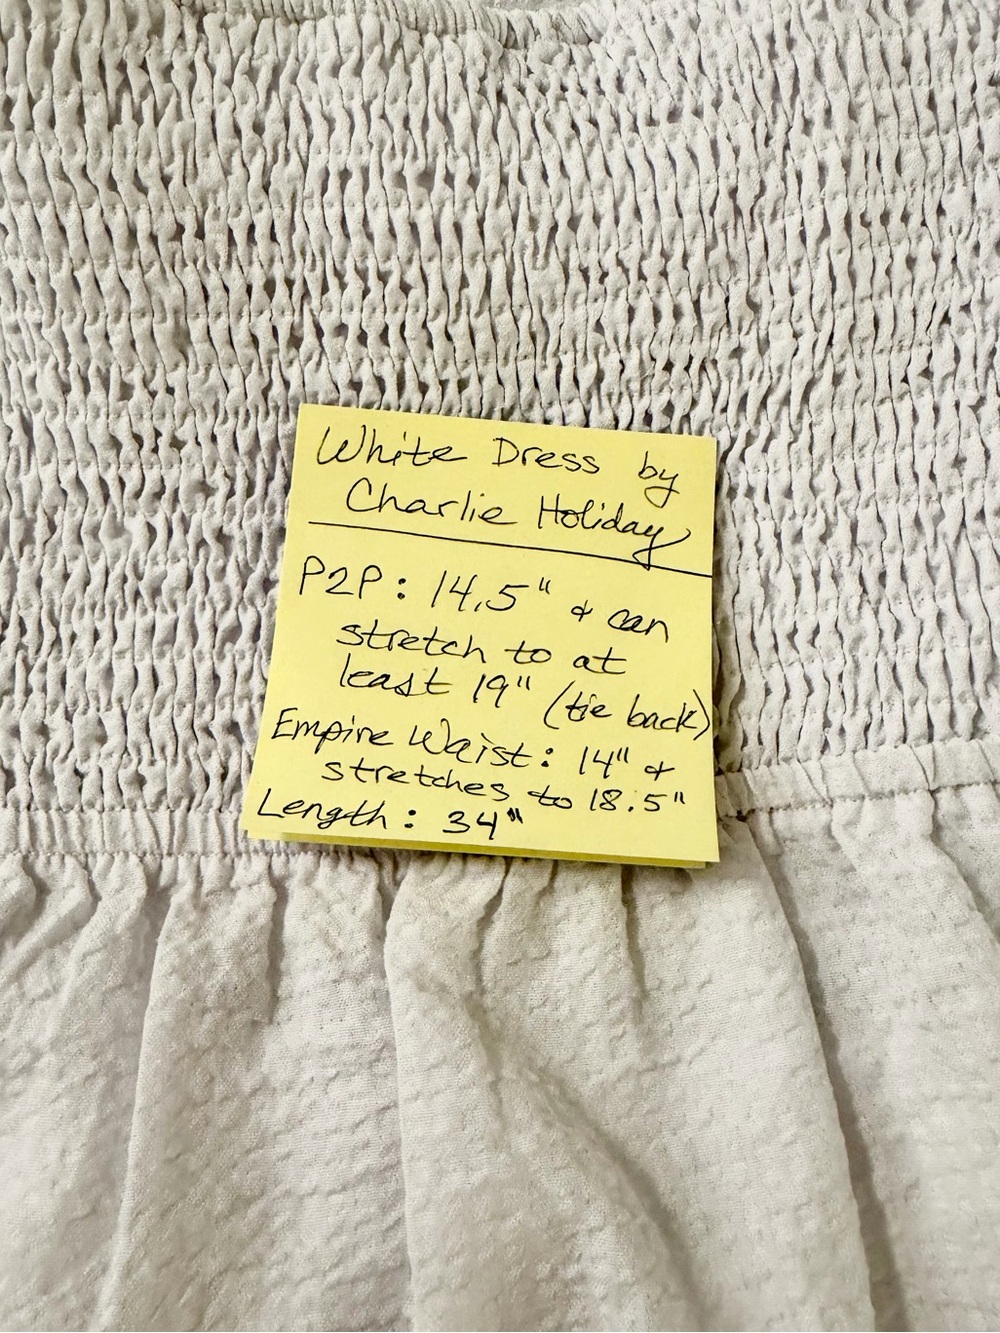 White Dress by
Charlie Holiday
P2P: 14.5" & can
stretch to at
least 19" (tie back)
Empire Waist: 14" &
stretches to 18.5"
Length: 34"